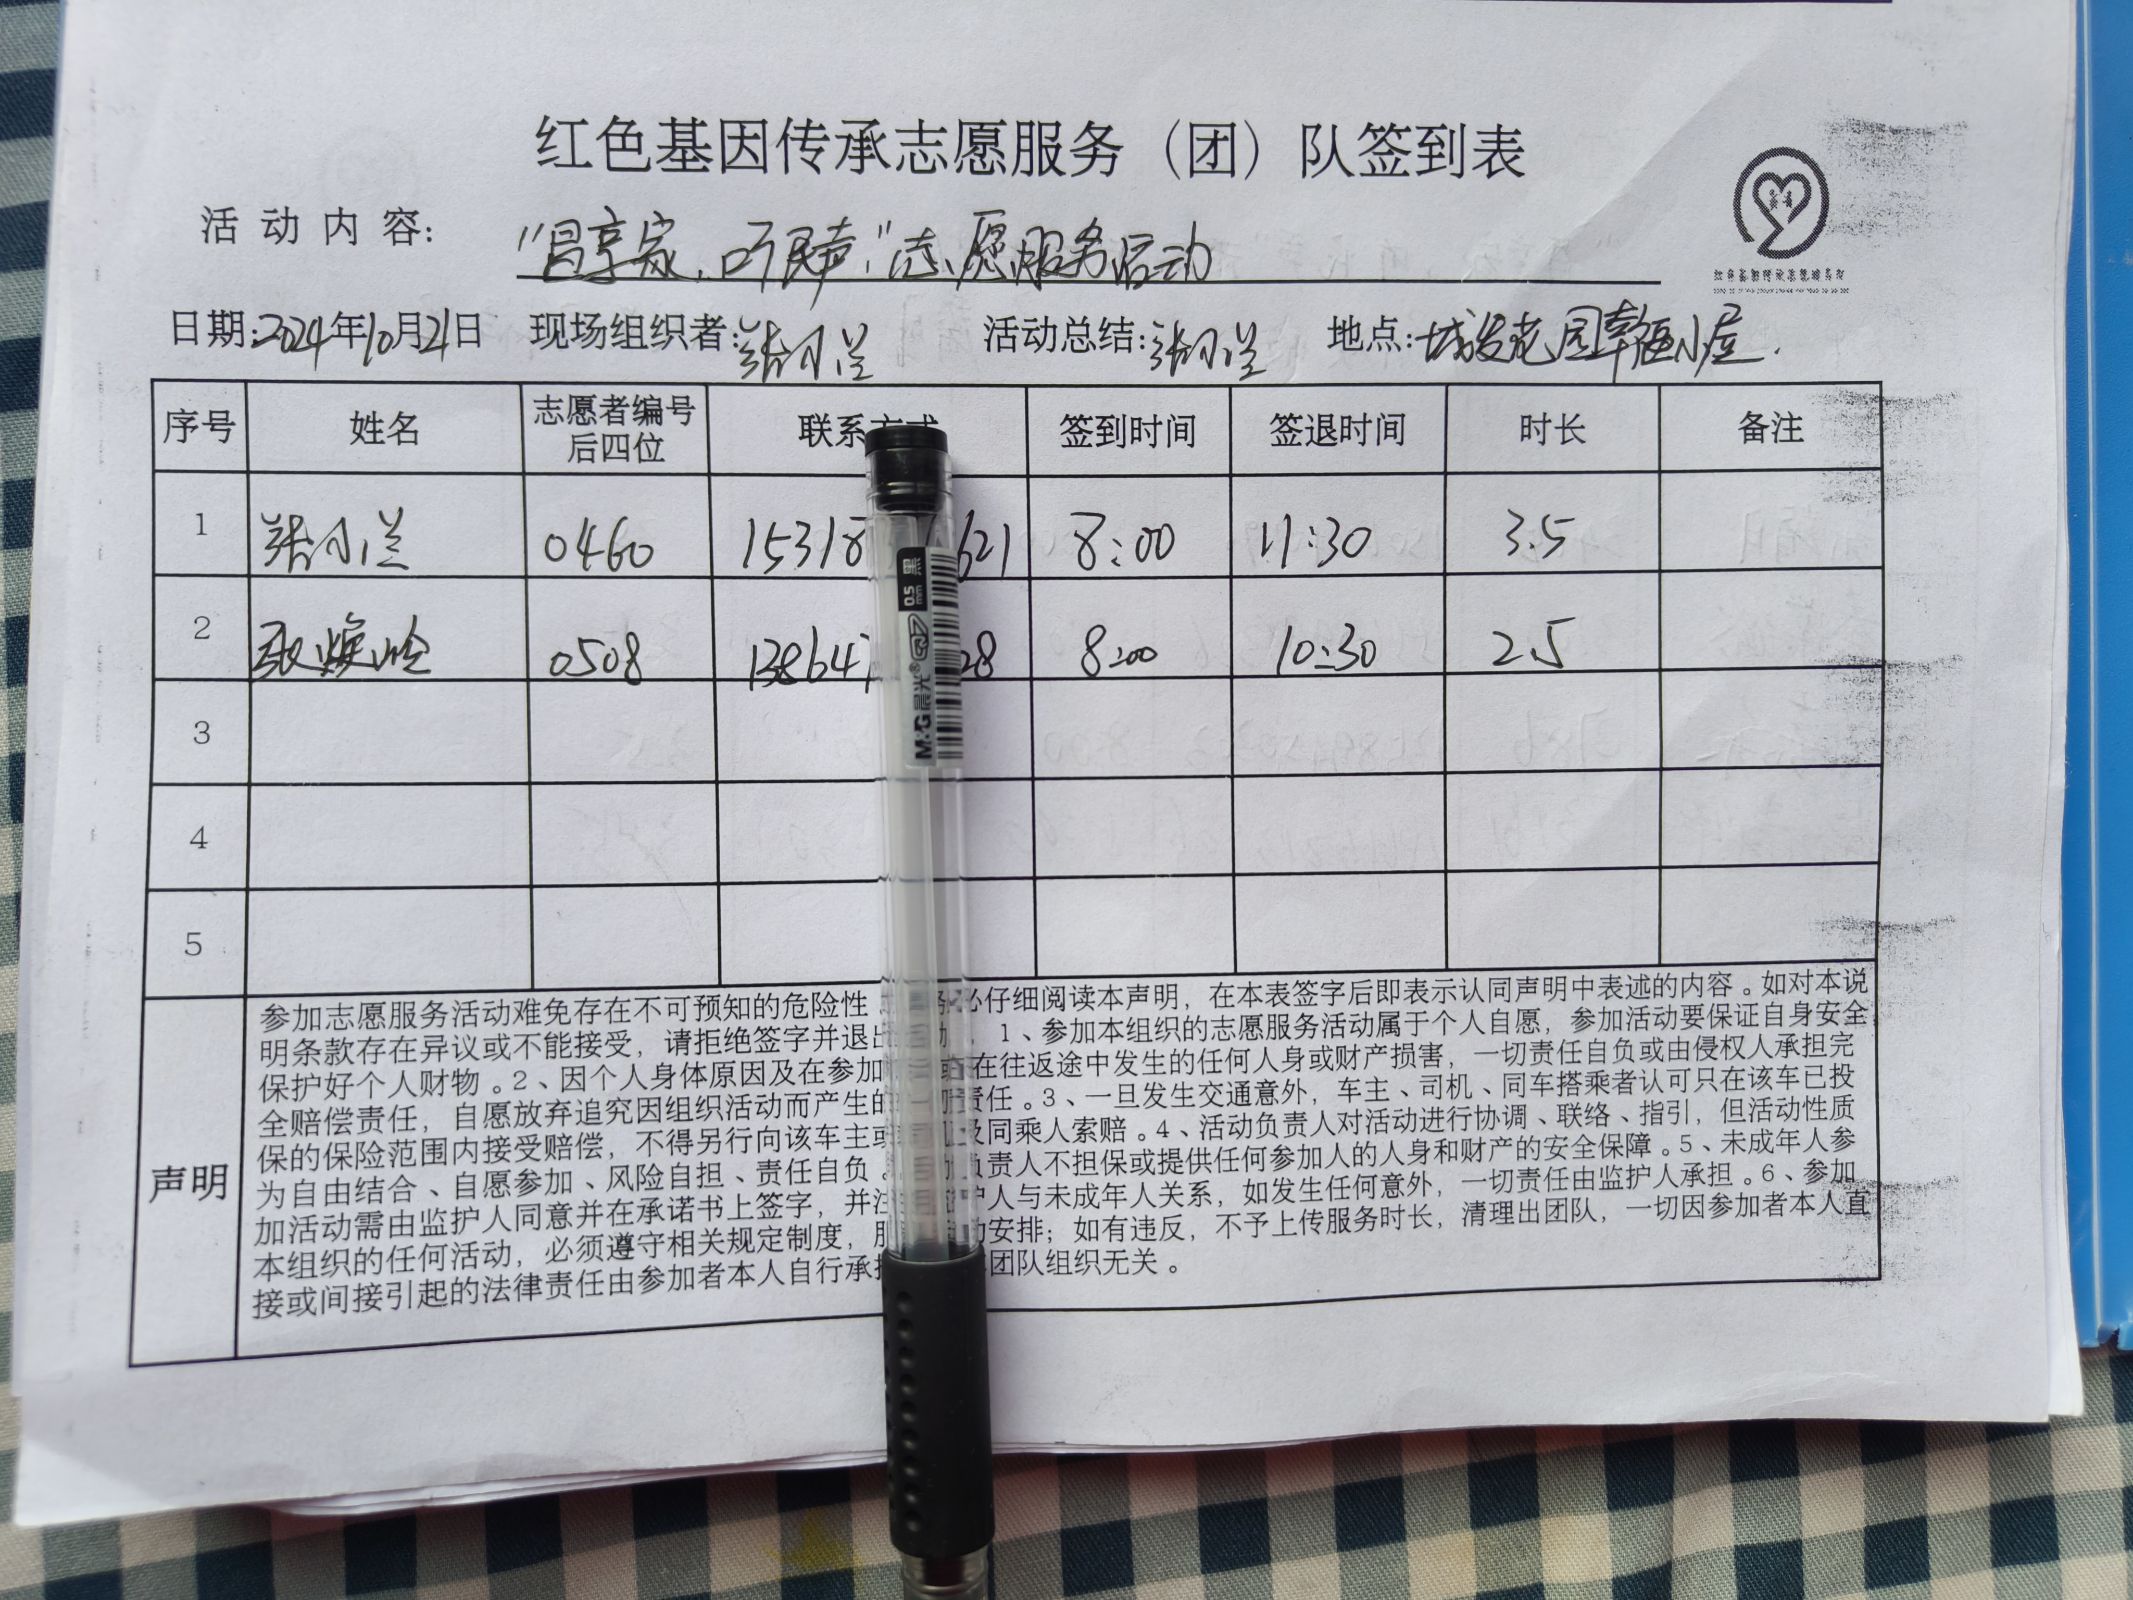 红色基因传承志愿服务（团）队签到表
活动内容: "昌享家，听民声"志愿服务活动
日期:2024年10月21日 现场组织者: 活动总结: 地点:城发花园幸福小屋.
序号 姓名 志愿者编号后四位 联系方式 签到时间 签退时间 时长 备注
1 0460 15318 621 8:00 11:30 3.5
2 0508 138647 28 8:00 10:30 2.5
3
4
5
声明
参加志愿服务活动难免存在不可预知的危险性 必仔细阅读本声明，在本表签字后即表示认同声明中表述的内容。如对本说
明条款存在异议或不能接受，请拒绝签字并退出 动。1、参加本组织的志愿服务活动属于个人自愿，参加活动要保证自身安全，
保护好个人财物。2、因个人身体原因及在参加 或在往返途中发生的任何人身或财产损害，一切责任自负或由侵权人承担完
全赔偿责任，自愿放弃追究因组织活动而产生的 责任。3、一旦发生交通意外，车主、司机、同车搭乘者认可只在该车已投
保的保险范围内接受赔偿，不得另行向该车主或 及同乘人索赔。4、活动负责人对活动进行协调、联络、指引，但活动性质
为自由结合、自愿参加、风险自担、责任自负。 负责人不担保或提供任何参加人的人身和财产的安全保障。5、未成年人参
加活动需由监护人同意并在承诺书上签字，并注 护人与未成年人关系，如发生任何意外，一切责任由监护人承担。6、参加
本组织的任何活动，必须遵守相关规定制度，服 安排；如有违反，不予上传服务时长，清理出团队，一切因参加者本人直
接或间接引起的法律责任由参加者本人自行承担 团队组织无关。
M&G晨光 0.5mm 黑